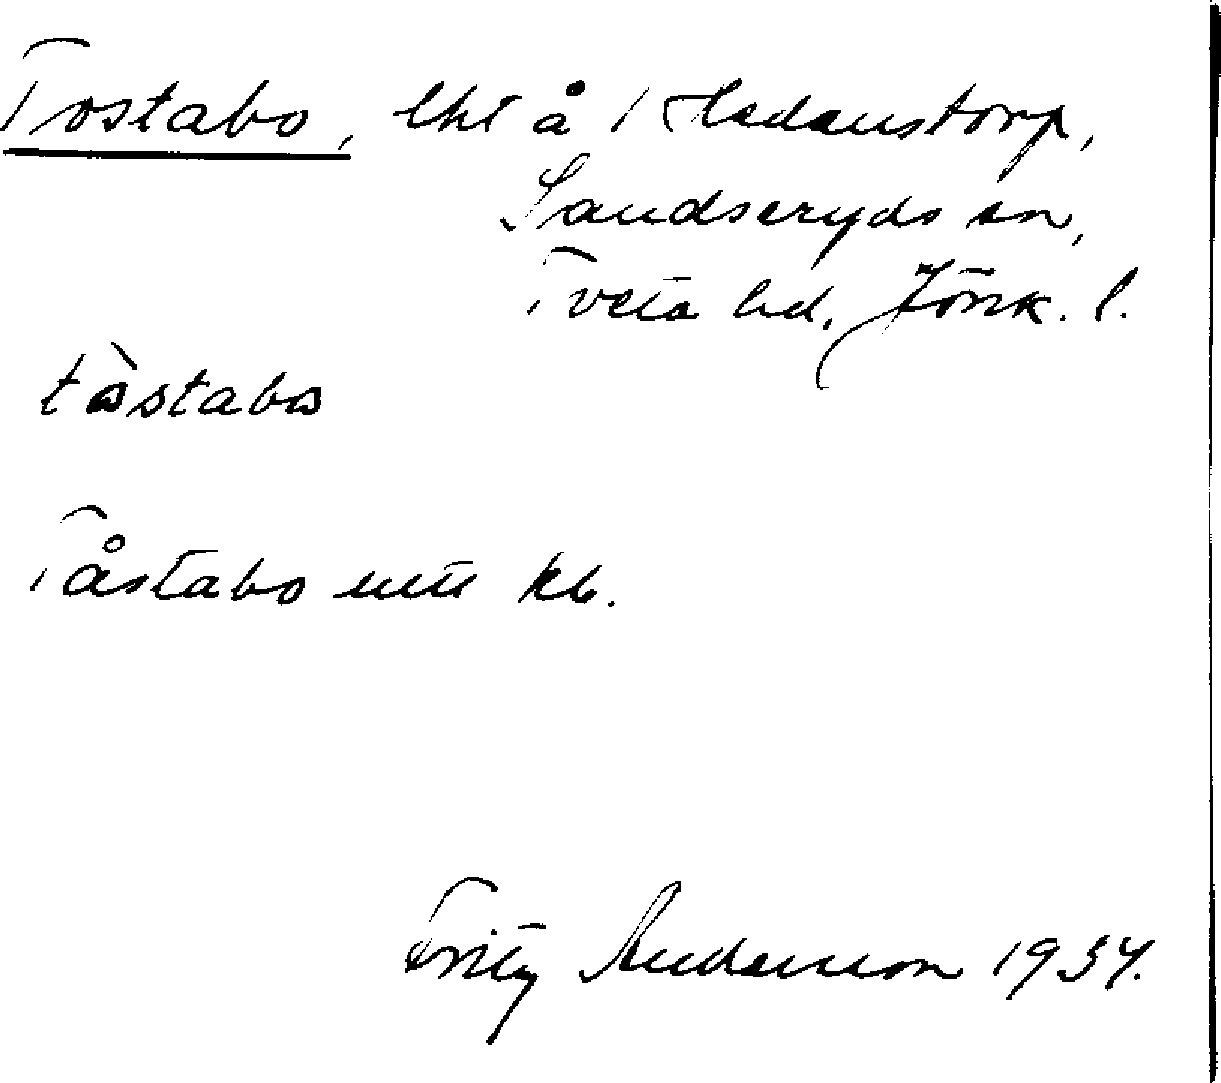 Tostabo, lht å 1 Hedenstorp,
Sandseryds sn,
Tveta hd, Jönk. l.
tòstabo
Tåstabo utt kb.
Fritz Anderson 1934.